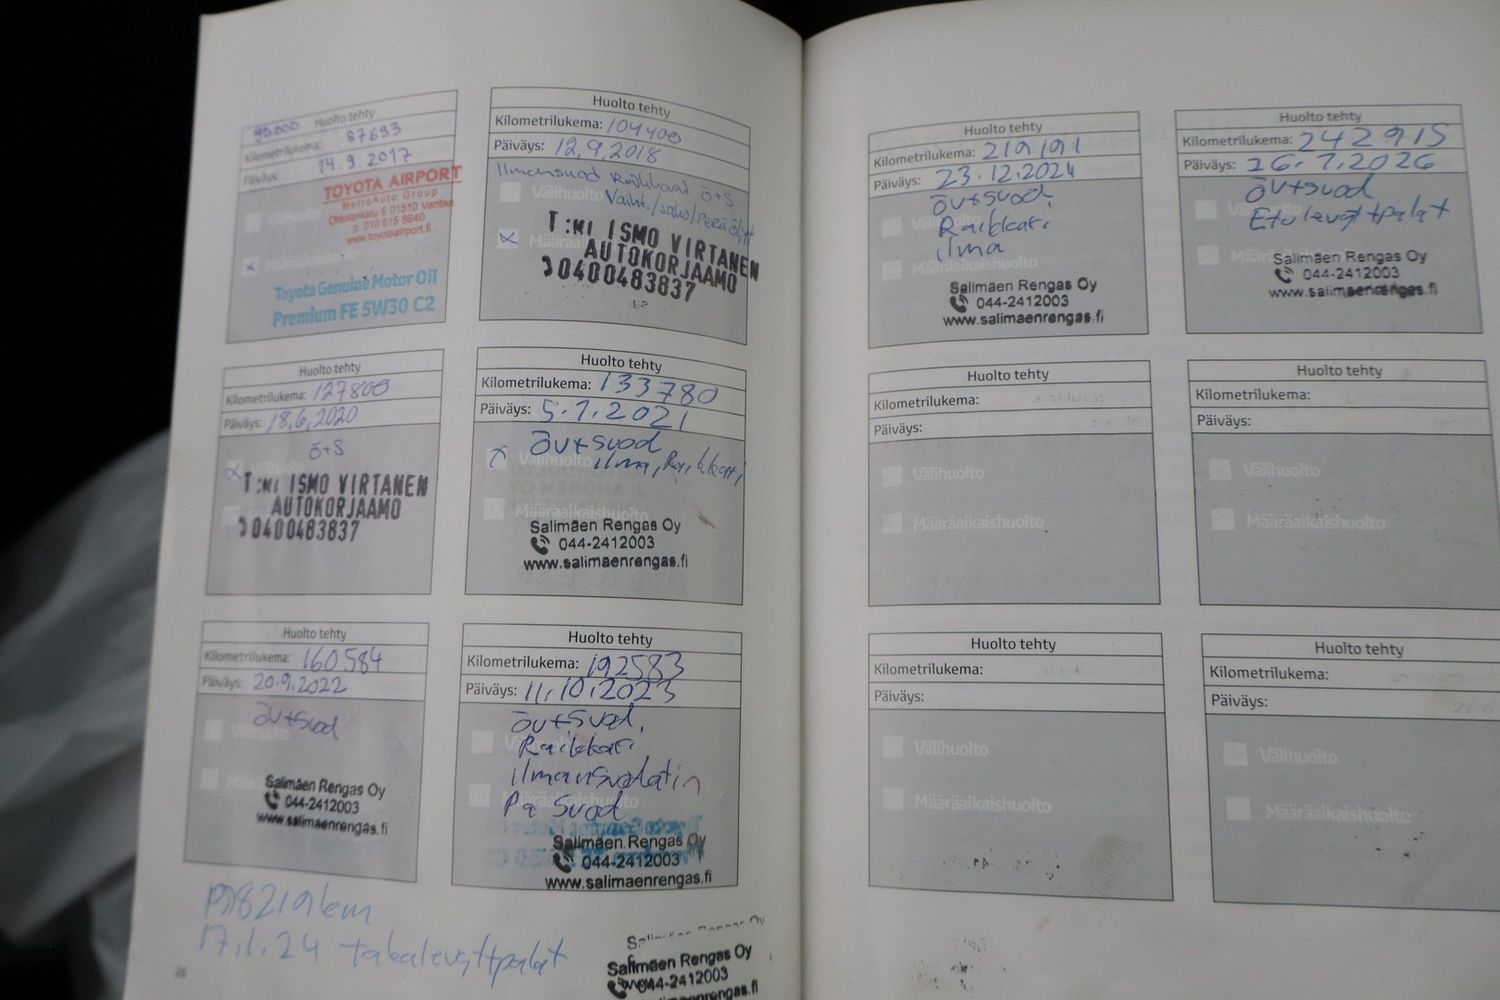 Huolto tehty
90.000
Kilometrilukema: 87693
Päiväys: 14.9.2017
TOYOTA AIRPORT
MetroAuto Group
Ohtolankatu 6 01510 Vantaa
p. 010 615 8640
www.toyotaairport.fi
Välihuolto
Määräaikaishuolto
Toyota Genuine Motor Oil
Premium FE 5W30 C2
Huolto tehty
Kilometrilukema: 104400
Päiväys: 12,9,2018
Ilmansuod Raikkaari Ö+S
Välihuolto
Vaiht./Jako/Perä öljyt
T:MI ISMO VIRTANEN
AUTOKORJAAMO
0400483837
Huolto tehty
Kilometrilukema: 127800
Päiväys: 18,6,2020
Ö+S
Välihuolto
T:MI ISMO VIRTANEN
AUTOKORJAAMO
0400483837
Huolto tehty
Kilometrilukema: 133780
Päiväys: 5.1.2021
Öv+suod
Välihuolto
ilma, Raikkari
Salimäen Rengas Oy
044-2412003
www.salimaenrengas.fi
Huolto tehty
Kilometrilukema: 160584
Päiväys: 20.9.2022
Öv+suod
Välihuolto
Salimäen Rengas Oy
044-2412003
www.salimaenrengas.fi
Huolto tehty
Kilometrilukema: 192583
Päiväys: 11.10.2023
Öv+suod.
Raikkari
ilmansuodatin
Pa Suod
Määräaikaishuolto
Salimäen Rengas Oy
044-2412003
www.salimaenrengas.fi
17.1.24 takalevyttpalat
Salimäen Rengas Oy
Salimäen Rengas Oy
044-2412003
www.salimaenrengas.fi
26
Huolto tehty
Kilometrilukema: 219191
Päiväys: 23.12.2024
Öv+suod.
Raikkari
ilma
Määräaikaishuolto
Salimäen Rengas Oy
044-2412003
www.salimaenrengas.fi
Huolto tehty
Kilometrilukema: 242915
Päiväys: 26.1.2026
Öv+suod
Etulevyttpalat
Salimäen Rengas Oy
044-2412003
www.salimaenrengas.fi
Huolto tehty
Kilometrilukema:
Päiväys:
Välihuolto
Määräaikaishuolto
Huolto tehty
Kilometrilukema:
Päiväys:
Välihuolto
Määräaikaishuolto
Huolto tehty
Kilometrilukema:
Päiväys:
Välihuolto
Määräaikaishuolto
Huolto tehty
Kilometrilukema:
Päiväys:
Välihuolto
Määräaikaishuolto